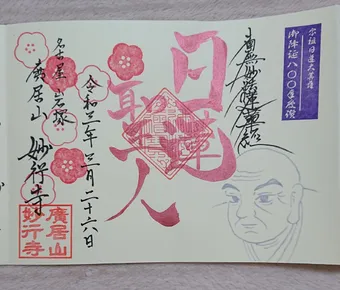 御降誕八〇〇年慶讃
南無妙法蓮華経
日蓮
聖人
令和三年三月二十六日
名古屋 岩塚
廣居山 妙行寺
廣居山
妙行寺